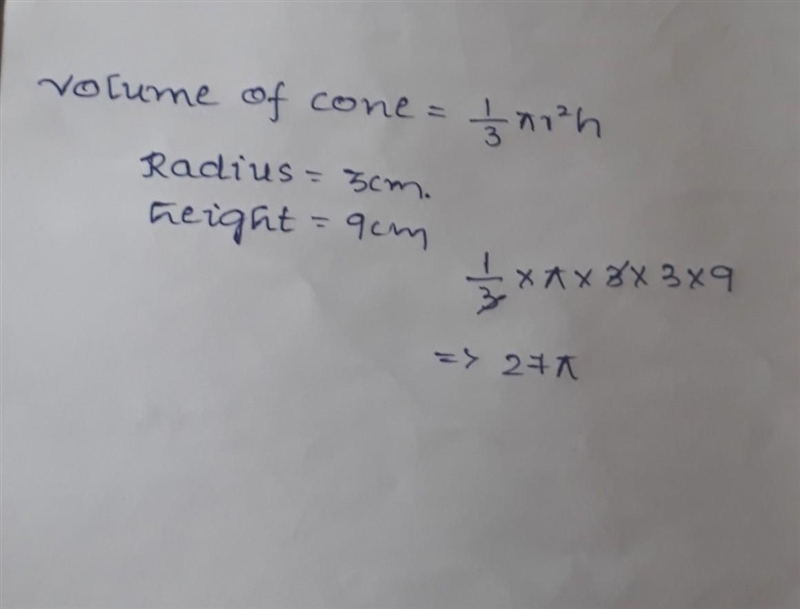 Volume of cone = 1/3 πr²h
Radius = 3cm.
height = 9cm
1/3 × π × 3 × 3 × 9
=> 27π